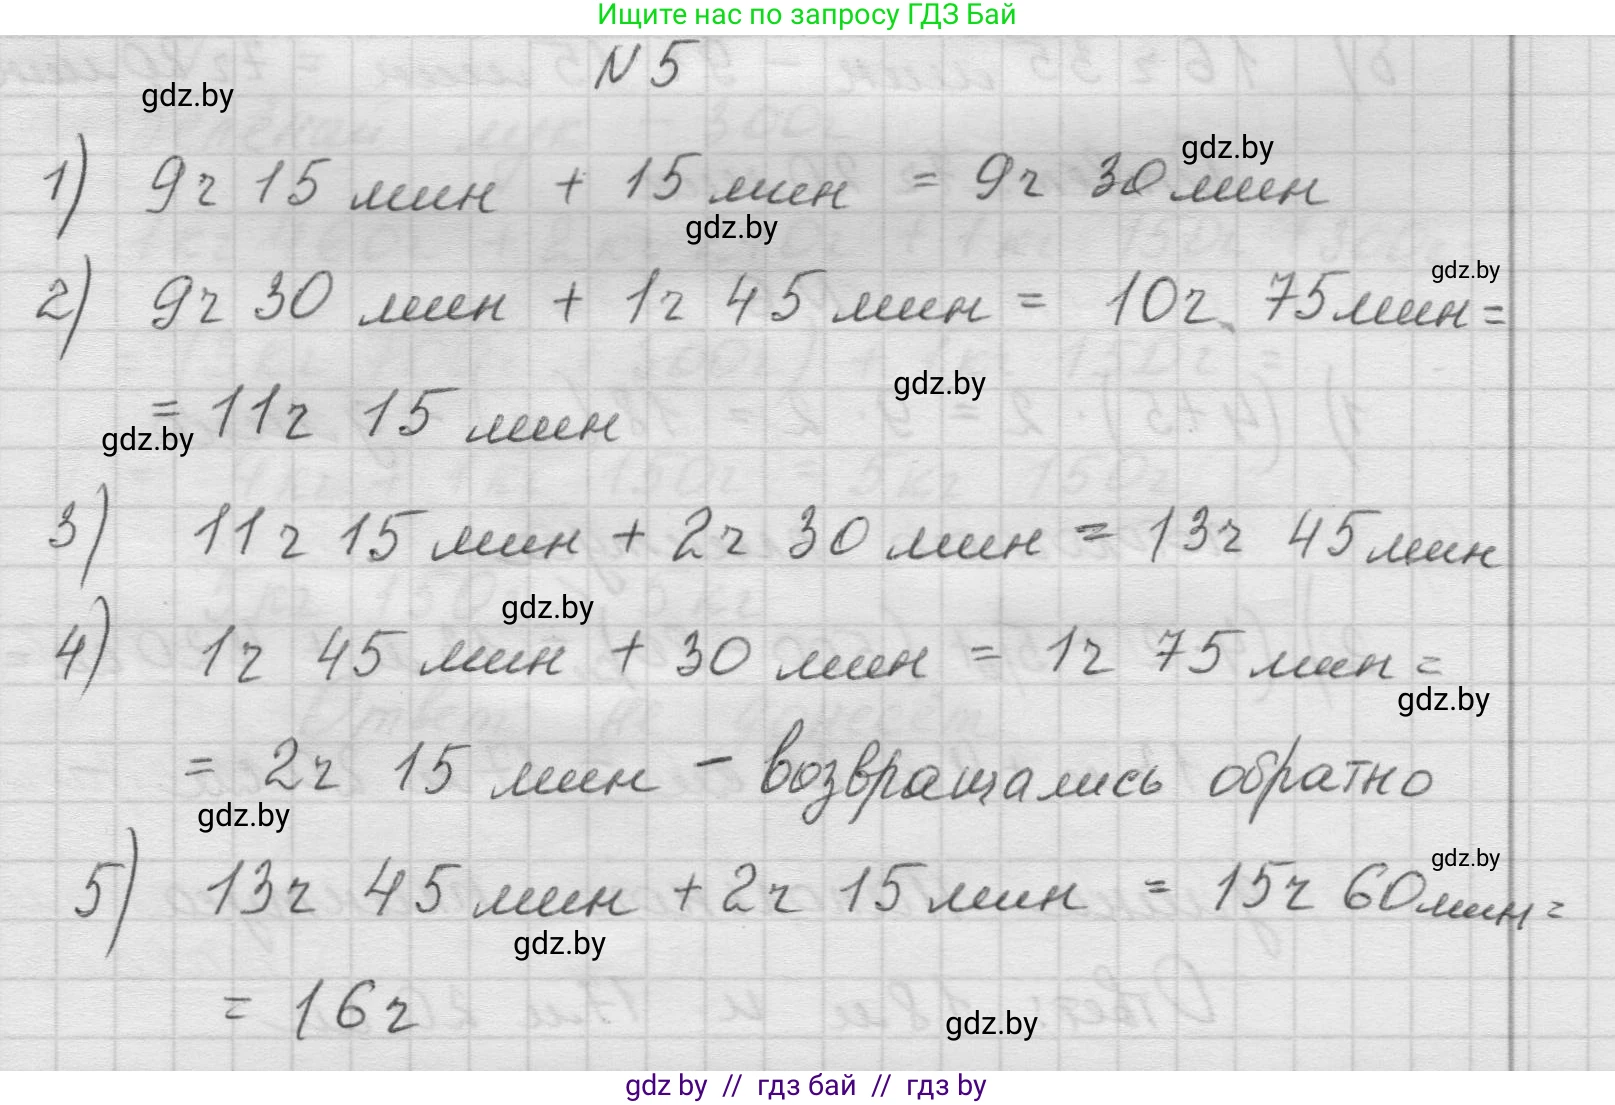 Ищите нас по запросу ГДЗ Бай
N 5
gdz.by
1) 9ч 15 мин + 15 мин = 9ч 30 мин
gdz.by
gdz.by
2) 9ч 30 мин + 1ч 45 мин = 10ч 75 мин =
gdz.by
= 11ч 15 мин
gdz.by
gdz.by
3) 11ч 15 мин + 2ч 30 мин = 13ч 45 мин
gdz.by
4) 1ч 45 мин + 30 мин = 1ч 75 мин =
gdz.by
= 2ч 15 мин - возвращались обратно
gdz.by
5) 13ч 45 мин + 2ч 15 мин = 15ч 60 мин =
gdz.by
gdz.by
= 16ч
gdz.by
gdz by // гдз бай // гдз by